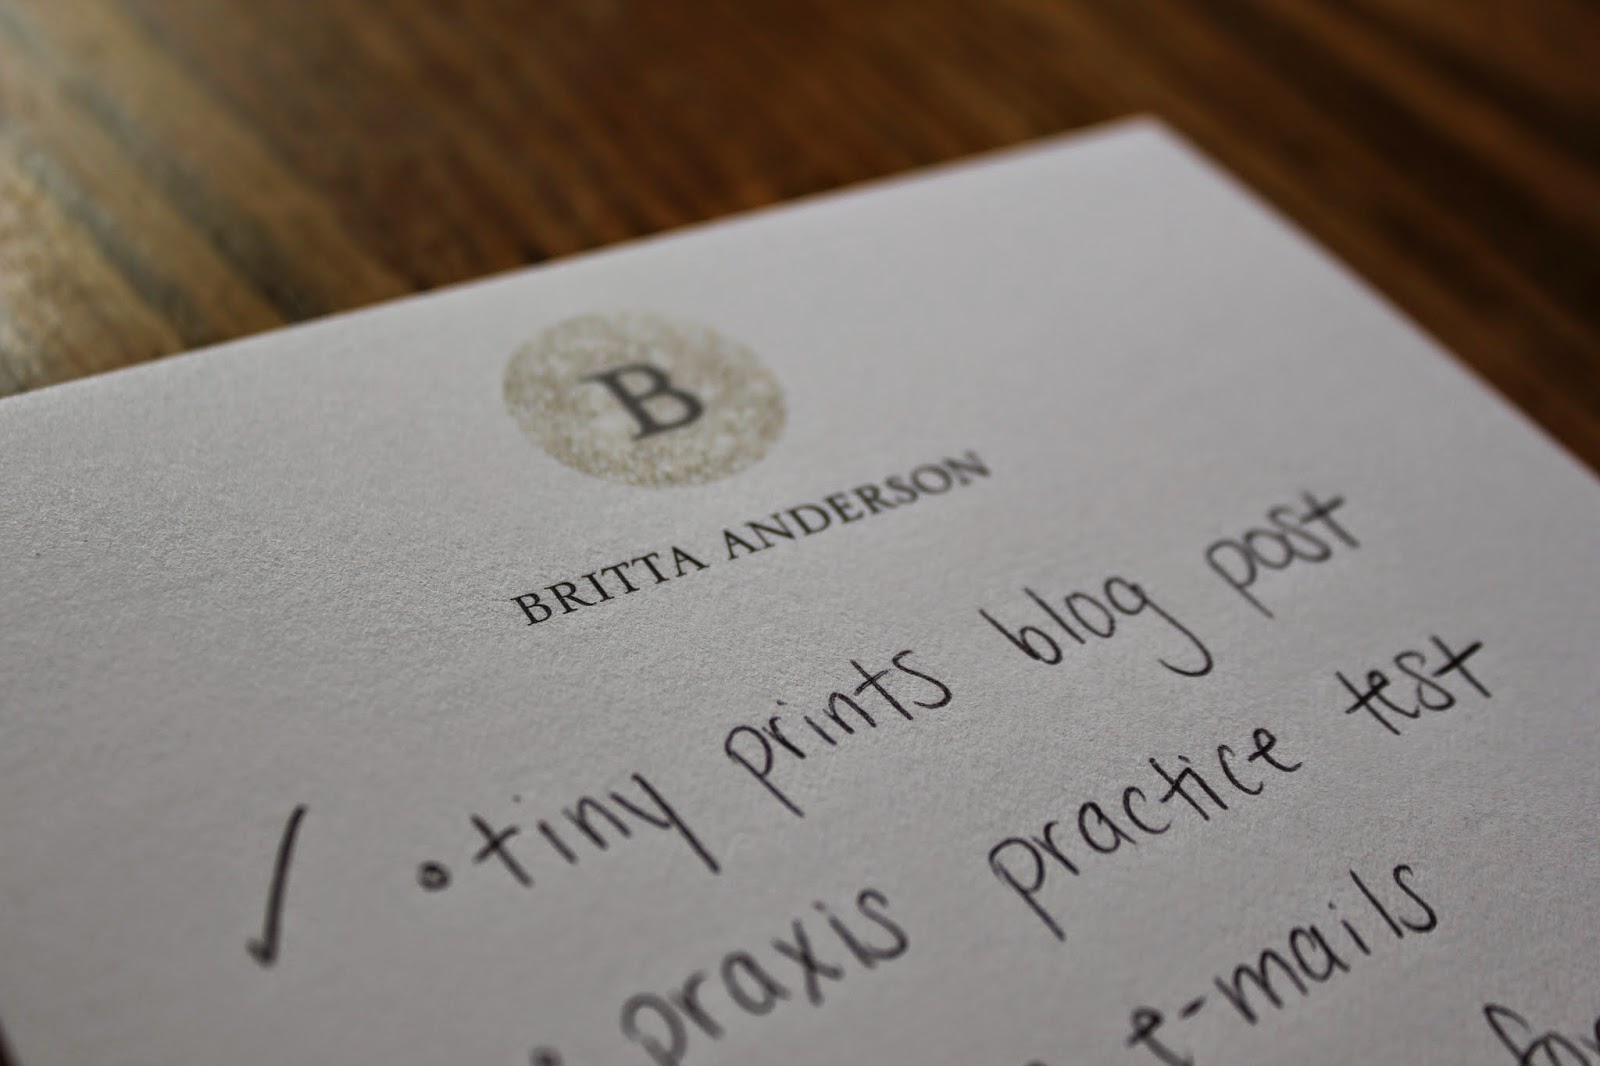 B
BRITTA ANDERSON
✓ • tiny prints blog post
• praxis practice test
e-mails